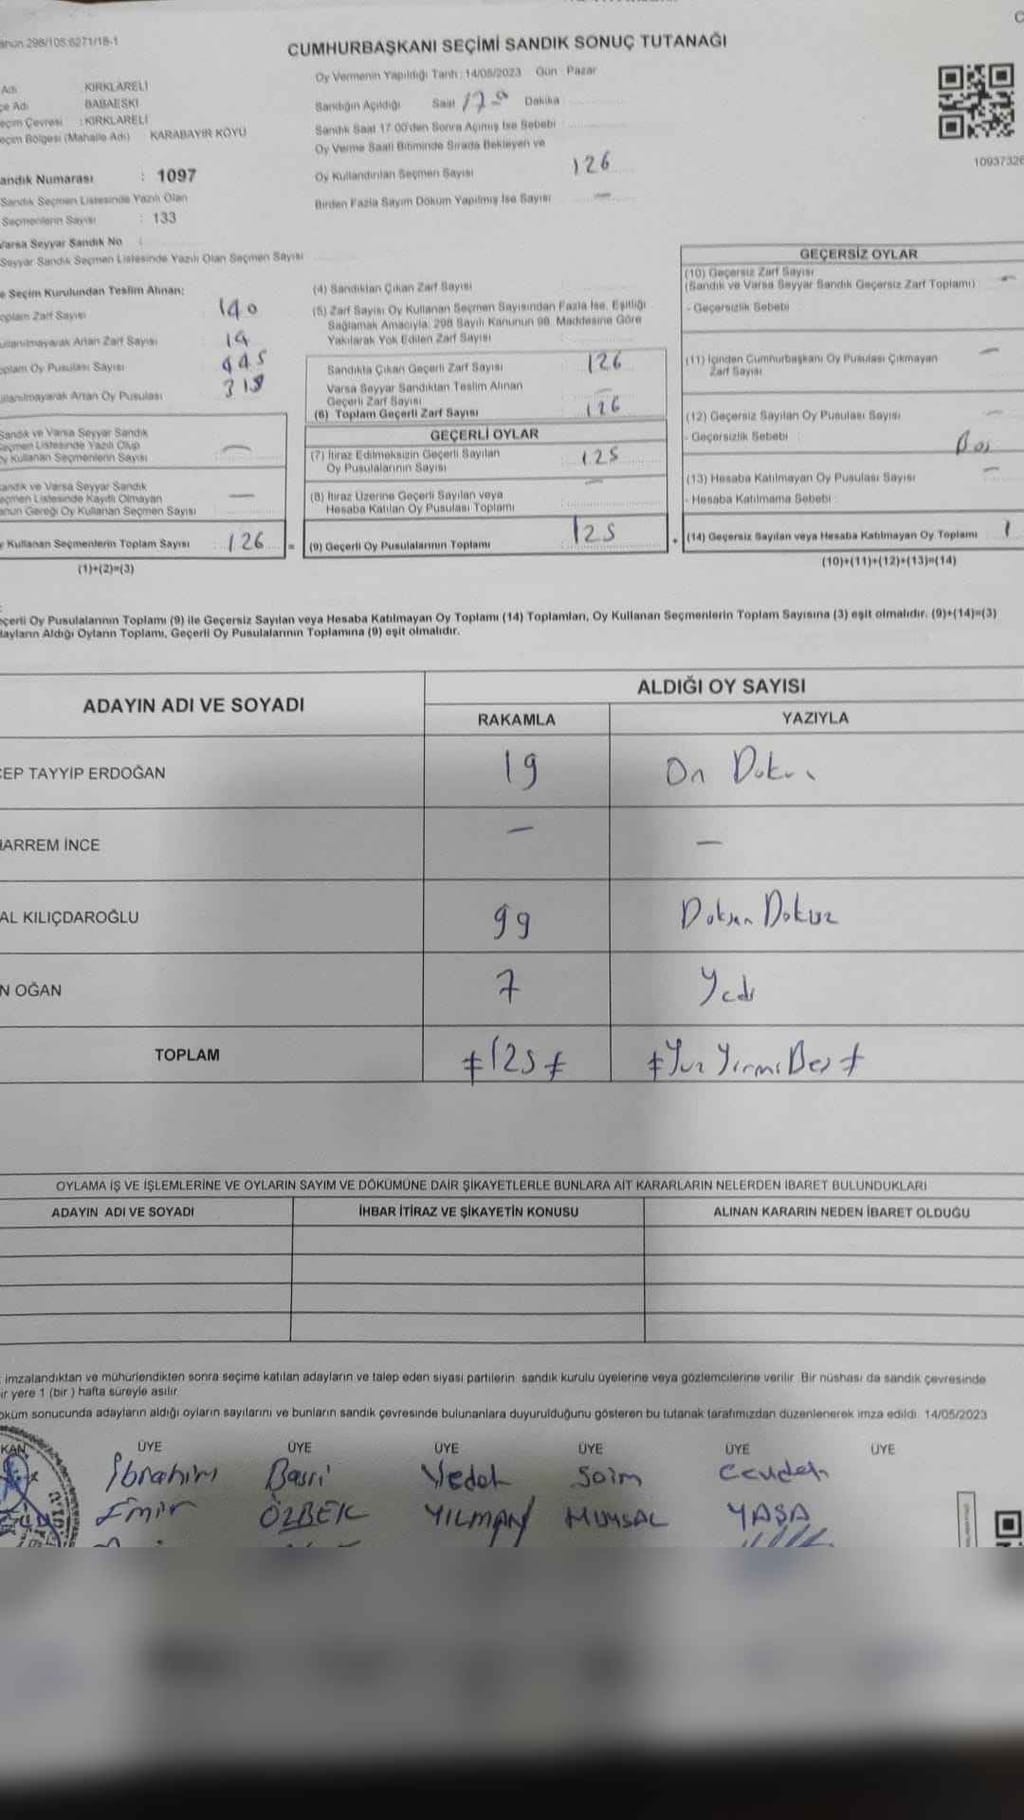 anun 298/105:6271/18-1
CUMHURBAŞKANI SEÇİMİ SANDIK SONUÇ TUTANAĞI
Oy Vermenin Yapıldığı Tarih: 14/05/2023 Gün: Pazar
Adı KIRKLARELİ
çe Adı BABAESKİ
eçim Çevresi : KIRKLARELİ
eçim Bölgesi (Mahalle Adı) KARABAYIR KÖYÜ
Sandığın Açıldığı Saat Dakika
Sandık Saat 17:00'den Sonra Açılmış İse Sebebi
Oy Verme Saati Bitiminde Sırada Bekleyen ve
Oy Kullandırılan Seçmen Sayısı 126
Birden Fazla Sayım Döküm Yapılmış İse Sayısı —
10937326
andık Numarası : 1097
Sandık Seçmen Listesinde Yazılı Olan
Seçmenlerin Sayısı : 133
Varsa Seyyar Sandık No :
Seyyar Sandık Seçmen Listesinde Yazılı Olan Seçmen Sayısı
e Seçim Kurulundan Teslim Alınan:
oplam Zarf Sayısı 140
ullanılmayarak Artan Zarf Sayısı 14
oplam Oy Pusulası Sayısı 445
ullanılmayarak Artan Oy Pusulası
Sandık ve Varsa Seyyar Sandık
Seçmen Listesinde Yazılı Olup
Oy Kullanan Seçmenlerin Sayısı —
andık ve Varsa Seyyar Sandık
eçmen Listesinde Kayıtlı Olmayan
anun Gereği Oy Kullanan Seçmen Sayısı —
y Kullanan Seçmenlerin Toplam Sayısı 126 =
(1)+(2)=(3)
(4) Sandıktan Çıkan Zarf Sayısı
(5) Zarf Sayısı Oy Kullanan Seçmen Sayısından Fazla İse, Eşitliği
Sağlamak Amacıyla, 298 Sayılı Kanunun 98. Maddesine Göre
Yakılarak Yok Edilen Zarf Sayısı
Sandıkta Çıkan Geçerli Zarf Sayısı 126
Varsa Seyyar Sandıktan Teslim Alınan
Geçerli Zarf Sayısı —
(6) Toplam Geçerli Zarf Sayısı 126
GEÇERLİ OYLAR
(7) İtiraz Edilmeksizin Geçerli Sayılan
Oy Pusulalarının Sayısı 125
(8) İtiraz Üzerine Geçerli Sayılan veya
Hesaba Katılan Oy Pusulası Toplamı —
(9) Geçerli Oy Pusulalarının Toplamı 125 +
GEÇERSİZ OYLAR
(10) Geçersiz Zarf Sayısı
(Sandık ve Varsa Seyyar Sandık Geçersiz Zarf Toplamı) —
- Geçersizlik Sebebi
(11) İçinden Cumhurbaşkanı Oy Pusulası Çıkmayan
Zarf Sayısı —
(12) Geçersiz Sayılan Oy Pusulası Sayısı —
- Geçersizlik Sebebi : Boş
(13) Hesaba Katılmayan Oy Pusulası Sayısı —
- Hesaba Katılmama Sebebi :
(14) Geçersiz Sayılan veya Hesaba Katılmayan Oy Toplamı 1
(10)+(11)+(12)+(13)=(14)
eçerli Oy Pusulalarının Toplamı (9) ile Geçersiz Sayılan veya Hesaba Katılmayan Oy Toplamı (14) Toplamları, Oy Kullanan Seçmenlerin Toplam Sayısına (3) eşit olmalıdır. (9)+(14)=(3)
dayların Aldığı Oyların Toplamı, Geçerli Oy Pusulalarının Toplamına (9) eşit olmalıdır.
ADAYIN ADI VE SOYADI ALDIĞI OY SAYISI
RAKAMLA YAZIYLA
CEP TAYYİP ERDOĞAN 19 On Dokuz
HARREM İNCE — —
AL KILIÇDAROĞLU 99 Doksan Dokuz
N OĞAN 7 Yedi
TOPLAM ≠125≠ ≠Yüz Yirmi Beş≠
OYLAMA İŞ VE İŞLEMLERİNE VE OYLARIN SAYIM VE DÖKÜMÜNE DAİR ŞİKAYETLERLE BUNLARA AİT KARARLARIN NELERDEN İBARET BULUNDUKLARI
ADAYIN ADI VE SOYADI İHBAR İTİRAZ VE ŞİKAYETİN KONUSU ALINAN KARARIN NEDEN İBARET OLDUĞU
imzalandıktan ve mühürlendikten sonra seçime katılan adayların ve talep eden siyasi partilerin, sandık kurulu üyelerine veya gözlemcilerine verilir. Bir nüshası da sandık çevresinde
ir yere 1 (bir) hafta süreyle asılır.
öküm sonucunda adayların aldığı oyların sayılarını ve bunların sandık çevresinde bulunanlara duyurulduğunu gösteren bu tutanak tarafımızdan düzenlenerek imza edildi. 14/05/2023
KAN ÜYE ÜYE ÜYE ÜYE ÜYE ÜYE
İbrahim Basri Vedat Saim Cevdet
Emir ÖZBEK YILMAZ YAŞA